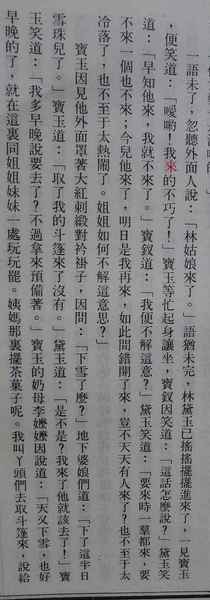 一語未了，忽聽外面人說：「林姑娘來了。」語猶未完，林黛玉已搖搖擺擺進來了，一見寶玉
，便笑道：「噯喲！我來的不巧了！」寶玉等忙起身讓坐，寶釵因笑道：「這話怎麼說？」黛玉笑
道：「早知他來，我就不來了。」寶釵道：「我更不解這意？」黛玉笑道：「要來時一羣都來，要
不來一個也不來；今兒他來了，明日是我再來，如此間錯開了來，豈不天天有人來了？也不至于太
冷落了，也不至于太熱鬧了。姐姐如何不解這意思？」
寶玉因見他外面罩着大紅羽緞對衿褂子，因問：「下雪了麼？」地下婆娘們道：「下了這半日
雪珠兒了。」寶玉道：「取了我的斗篷來了沒有。」黛玉道：「是不是？我來了他就該去了！」寶
玉笑道：「我多早晚說要去了？不過拿來預備著。」寶玉的奶母李嬤嬤因說道：「天又下雪，也好
早晚的了，就在這裏同姐姐妹妹一處玩玩罷。姨媽那裏擺茶菓子呢。我叫丫頭們去取斗篷來，說給